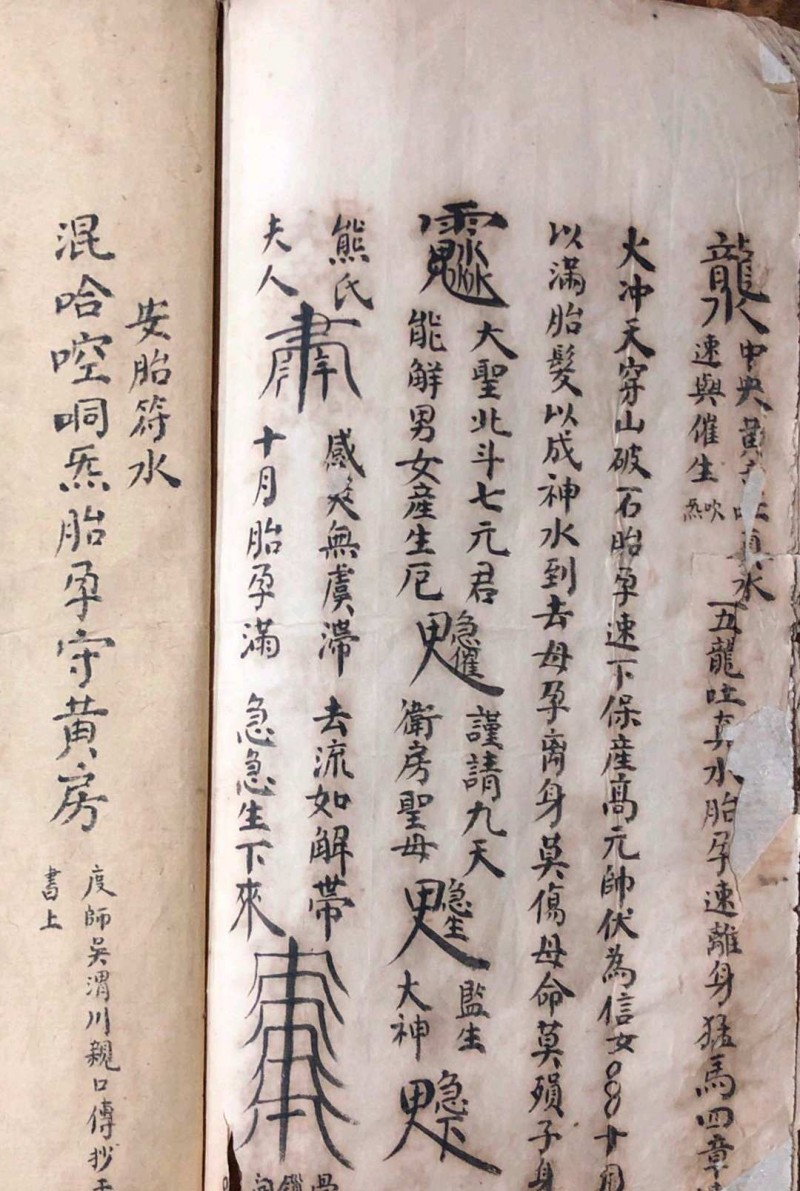 中央黃吐真水
速與催生 吹炁
五龍吐真水胎孕速離身猛馬四章
火冲天穿山破石胎孕速下保產高元帥伏為信女 十月
以滿胎髮以成神水到去母孕离身莫傷母命莫殞子身
大聖北斗七元君
能解男女產生厄
急催
謹請九天
衛房聖母
急生
監生
大神
急下
熊氏
夫人
感 無虞滯
十月胎孕滿
去流如解帶
急急生下來
安胎符水
混哈啌哃炁胎孕守黄房
度師吳渭川親口傳抄
書上